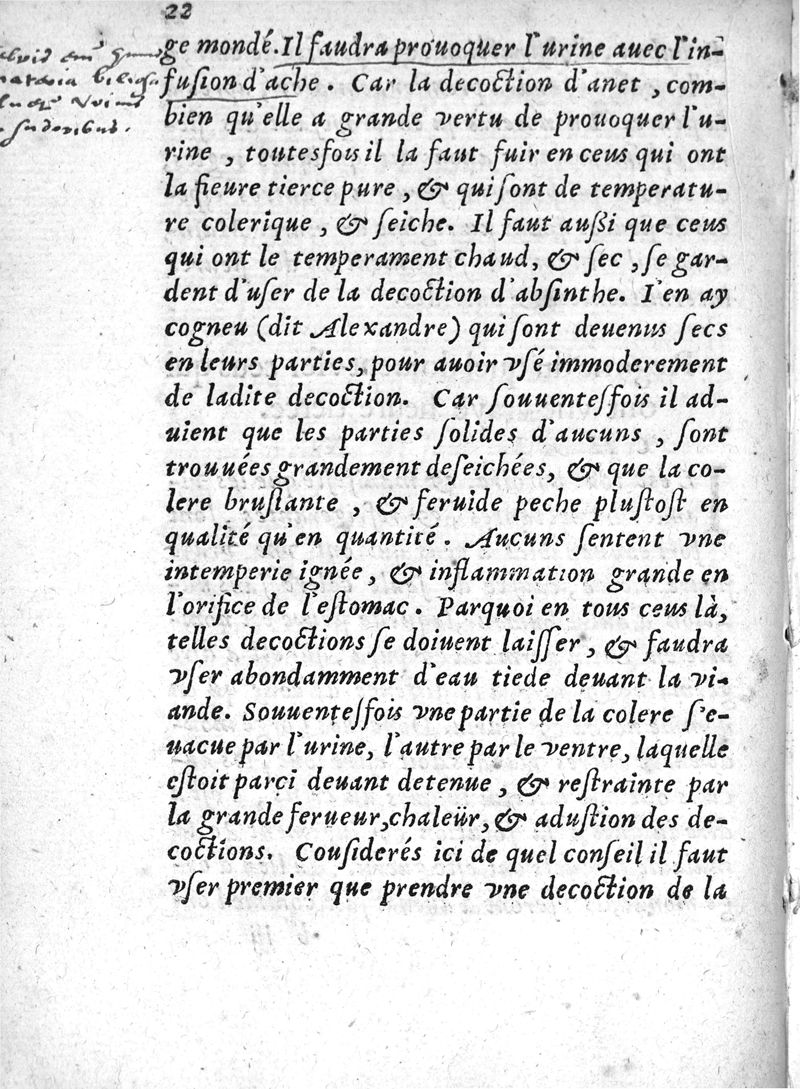 22
ge mondé. Il faudra prouoquer l'urine auec l'in-
fuſion d'ache. Car la decoction d'anet, com-
bien qu'elle a grande vertu de prouoquer l'u-
rine, toutesfois il la faut fuir en ceus qui ont
la fieure tierce pure, & qui ſont de temperatu-
re colerique, & ſeiche. Il faut außi que ceus
qui ont le temperament chaud, & ſec, ſe gar-
dent d'uſer de la decoction d'abſinthe. I'en ay
cogneu (dit Alexandre) qui ſont deuenus ſecs
en leurs parties, pour auoir vſé immoderement
de ladite decoction. Car ſouuenteſfois il ad-
uient que les parties ſolides d'aucuns, ſont
trouuées grandement deſeichées, & que la co-
lere bruſlante, & feruide peche pluſtoſt en
qualité qu'en quantité. Aucuns ſentent vne
intemperie ignée, & inflammation grande en
l'orifice de l'eſtomac. Parquoi en tous ceus là,
telles decoctions ſe doiuent laiſſer, & faudra
vſer abondamment d'eau tiede deuant la vi-
ande. Souuenteſfois vne partie de la colere ſ'e-
uacue par l'urine, l'autre par le ventre, laquelle
eſtoit parci deuant detenue, & reſtrainte par
la grande ferueur, chaleür, & aduſtion des de-
coctions. Couſiderés ici de quel conſeil il faut
vſer premier que prendre vne decoction de la
ſudoribus.